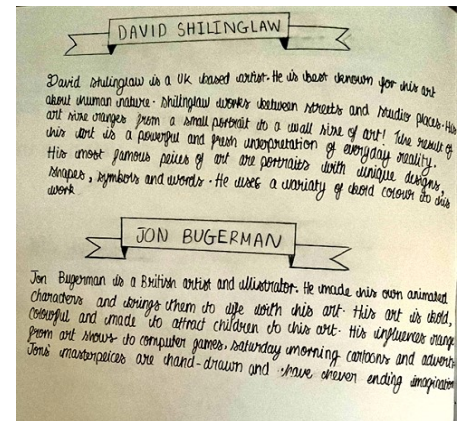 DAVID SHILINGLAW
David Shilinglaw is a UK based artist. He is best known for his art
about human nature. Shilinglaw works between streets and studio places. His
art size ranges from a small portrait to a wall size of art! The result of
his art is a powerful and fresh interpretation of everyday reality.
His most famous peices of art are portraits with unique designs,
shapes, symbols and words. He uses a variaty of bold colour to his
work
JON BUGERMAN
Jon Bugerman is a British artist and illistrator. He made his own animated
characters and brings them to life with his art. His art is bold,
colourful and made to attract children to his art. His influences range
from art shows to computer games, saturday morning cartoons and adverts
Jons' masterpeices are hand-drawn and have never ending imagination